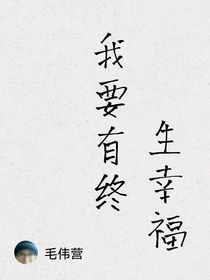 我要有终
生幸福
毛伟营